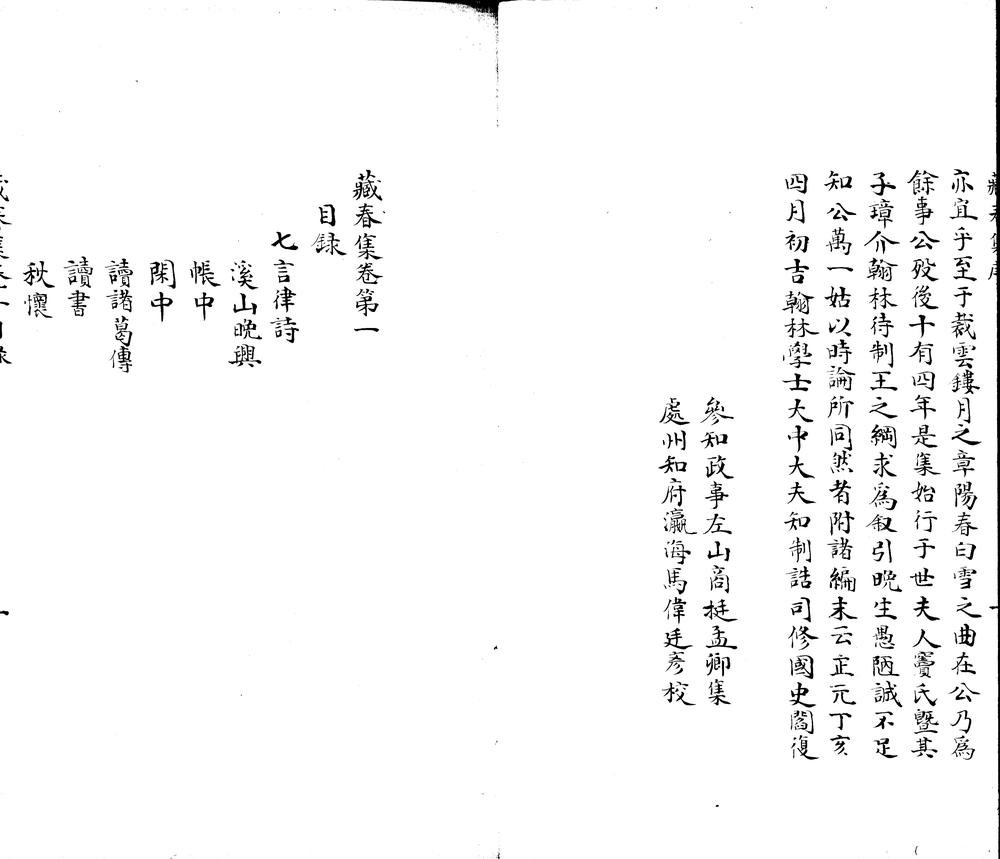 藏春集序
亦宜乎至于裁雲鏤月之章陽春白雪之曲在公乃爲
餘事公歿後十有四年是集始行于世夫人竇氏曁其
子璋介翰林待制王之綱求爲叙引晩生愚陋誠不足
知公萬一姑以時論所同然者附諸編末云至元丁亥
四月初吉翰林學士大中大夫知制誥司修國史閻復
參知政事左山商挺孟卿集
處州知府瀛海馬偉廷彥校
藏春集卷第一
目録
七言律詩
溪山晩興
帳中
閑中
讀諸葛傳
讀書
秋懷
藏春集卷一目錄
一